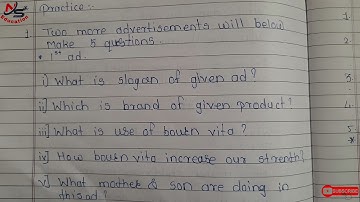 NS
Education
Practice :-
1. Two more advertisements will below
Make 5 questions.
• 1st ad.
i) What is slogan of given ad?
ii) Which is brand of given product?
iii) What is use of bourn vita?
iv) How bourn vita increase our strenth?
v) What mother & son are doing in
this ad?
1
2
3
4
5
*
SUBSCRIBE